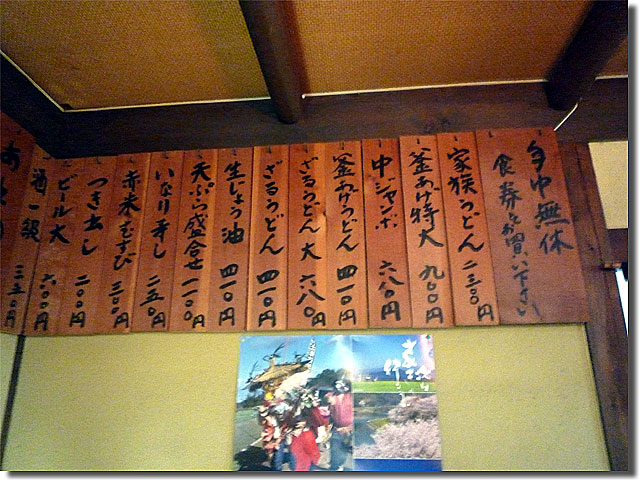 年中無休
食券をお買い下さい
家族うどん 二三〇〇円
釜あげ特大 九〇〇円
中ジャンボ 六八〇円
釜あげうどん 四一〇円
ざるうどん 大 六八〇円
ざるうどん 四一〇円
生じょう油 四一〇円
天ぷら盛合せ 一一〇〇円
いなり寿し 二五〇円
赤米むすび 三〇〇円
つき出し 二〇〇円
ビール大 六〇〇円
酒一級 三五〇円